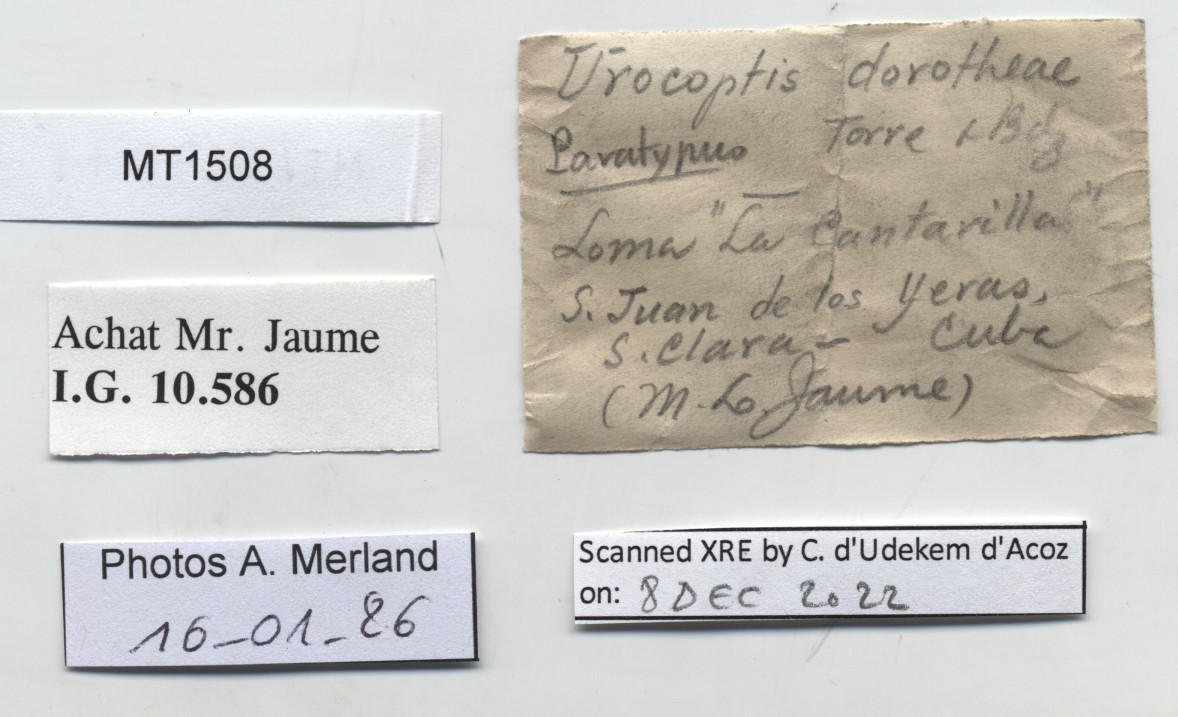 MT1508
Achat Mr. Jaume
I.G. 10.586
Photos A. Merland
16-01-26
Urocoptis dorotheae
Paratypus Torre & Bdz
Loma "La Cantarilla"
S. Juan de los Yeras,
S. Clara - Cuba
(M. L. Jaume)
Scanned XRE by C. d'Udekem d'Acoz
on: 8 DEC 2022